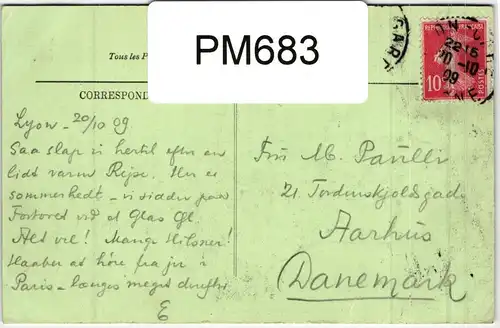 PM683
Tous les P
CORRESPOND
GARE
REPUBLIQUE FRANCAISE
10
POSTES
2215
20-10
09
Lyon - 20/10 09
Saa slap vi hertil efter en
lidt varm Rejse. Her er
sommerhedt - vi sidder paa
Fortovet ved et Glas Øl
Alt vel! Mange Hilsner!
Haaber at høre fra jer i
Paris - længes meget derefter
E
Fru M. Paulli
21 Tordenskjoldsgad
Aarhus
Danemark